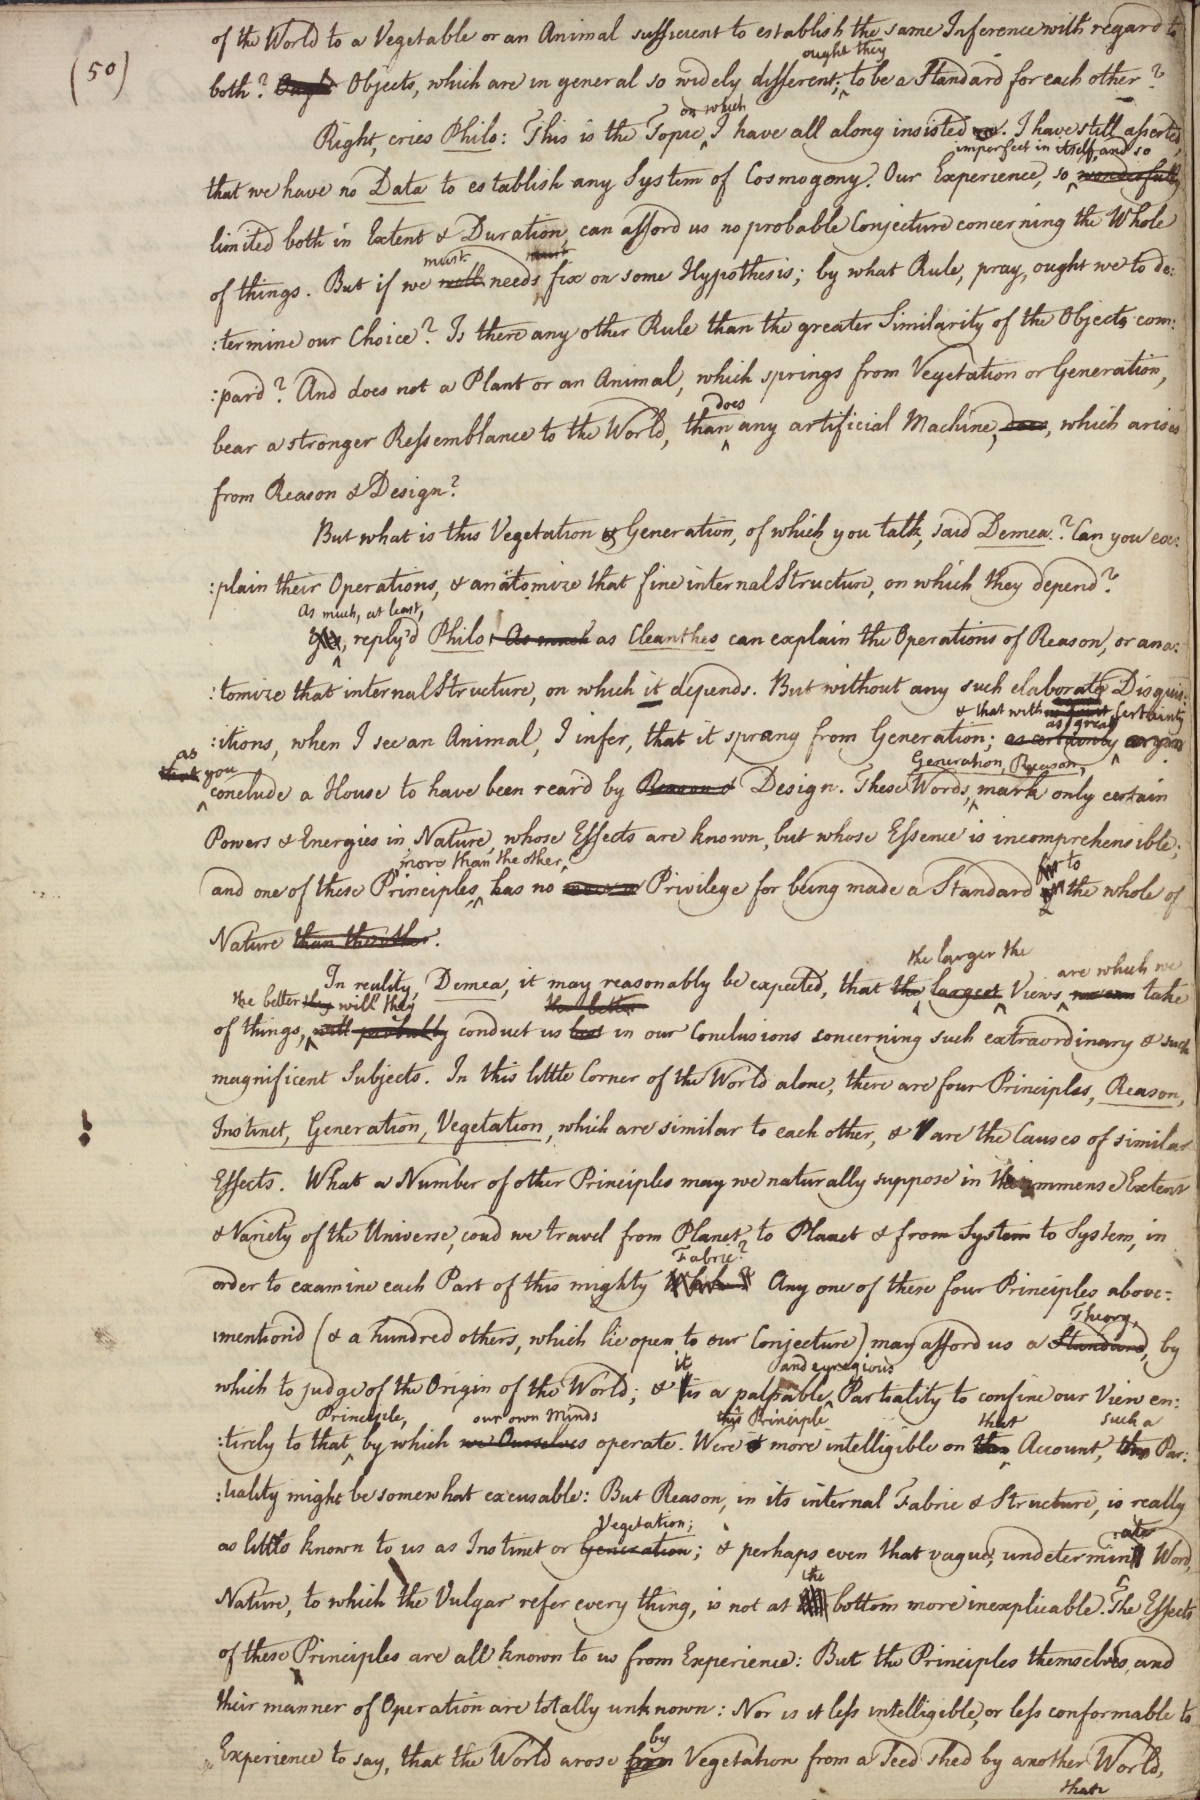 (50)
of the World to a Vegetable or an Animal sufficient to establish the same Inference with regard to
ought they
both? Ought Objects, which are in general so widely different; to be a Standard for each other?
on which
Right, cries Philo: This is the Topic, I have all along insisted on. I have still asserted,
imperfect in itself, and so
that we have no Data to establish any System of Cosmogony. Our Experience, so wonderfully
limited both in Extent & Duration, can afford us no probable Conjecture concerning the Whole
must must
of things. But if we will needs fix on some Hypothesis; by what Rule, pray, ought we to de:
:termine our Choice? Is there any other Rule than the greater Similarity of the Objects com:
:par'd? And does not a Plant or an Animal, which springs from Vegetation or Generation,
does
bear a stronger Ressemblance to the World, than any artificial Machine, does, which arises
from Reason & Design?
But what is this Vegetation & Generation, of which you talk, said Demea? Can you ex:
:plain their Operations, & anatomize that fine internal Structure, on which they depend?
As much, at least,
Yes, reply'd Philo: As much as Cleanthes can explain the Operations of Reason, or ana:
:tomize that internal Structure, on which it depends. But without any such elaborate Disquis:
& that with as great Certainty
:itions, when I see an Animal, I infer, that it sprang from Generation; as certainly
as
that you Generation, Reason,
conclude a House to have been rear'd by Reason & Design. These Words, mark only certain
Powers & Energies in Nature, whose Effects are known, but whose Essence is incomprehensible;
more than the other, to
and one of these Principles, has no Privilege for being made a Standard the whole of
Nature than the other.
the larger the are which we
In reality, Demea, it may reasonably be expected, that the largest Views take
the better they will they the better
of things, will probably conduct us best in our Conclusions concerning such extraordinary & such
magnificent Subjects. In this little Corner of the World alone, there are four Principles, Reason,
Instinct, Generation, Vegetation, which are similar to each other, & are the Causes of similar
Effects. What a Number of other Principles may we naturally suppose in the immense Extent
& Variety of the Universe, coud we travel from Planet to Planet & from System to System, in
Fabric?
order to examine each Part of this mighty Any one of these four Principles above:
Theory,
:mention'd (& a hundred others, which lie open to our Conjecture) may afford us a Standard, by
it and egregious
which to judge of the Origin of the World; & tis a palpable Partiality to confine our View en:
Principle, our own Minds this Principle that such a
:tirely to that by which we Ourselves operate. Were more intelligible on Account, Par:
:tiality might be somewhat excusable: But Reason, in its internal Fabric & Structure, is really
Vegetation;
as little known to us as Instinct or Generation; & perhaps even that vague, undetermin
:ate
Word,
the
Nature, to which the Vulgar refer every thing, is not at bottom more inexplicable. The Effects
of these Principles are all known to us from Experience: But the Principles themselves, and
their manner of Operation are totally unknown: Nor is it less intelligible, or less conformable to
by
Experience to say, that the World arose from Vegetation from a Seed shed by another World,
than